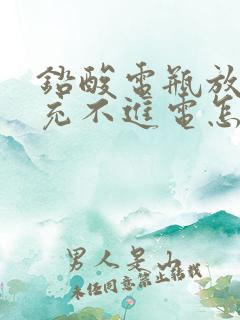 铅酸电瓶放
充不进电怎
男人是山
未经同意禁止转载